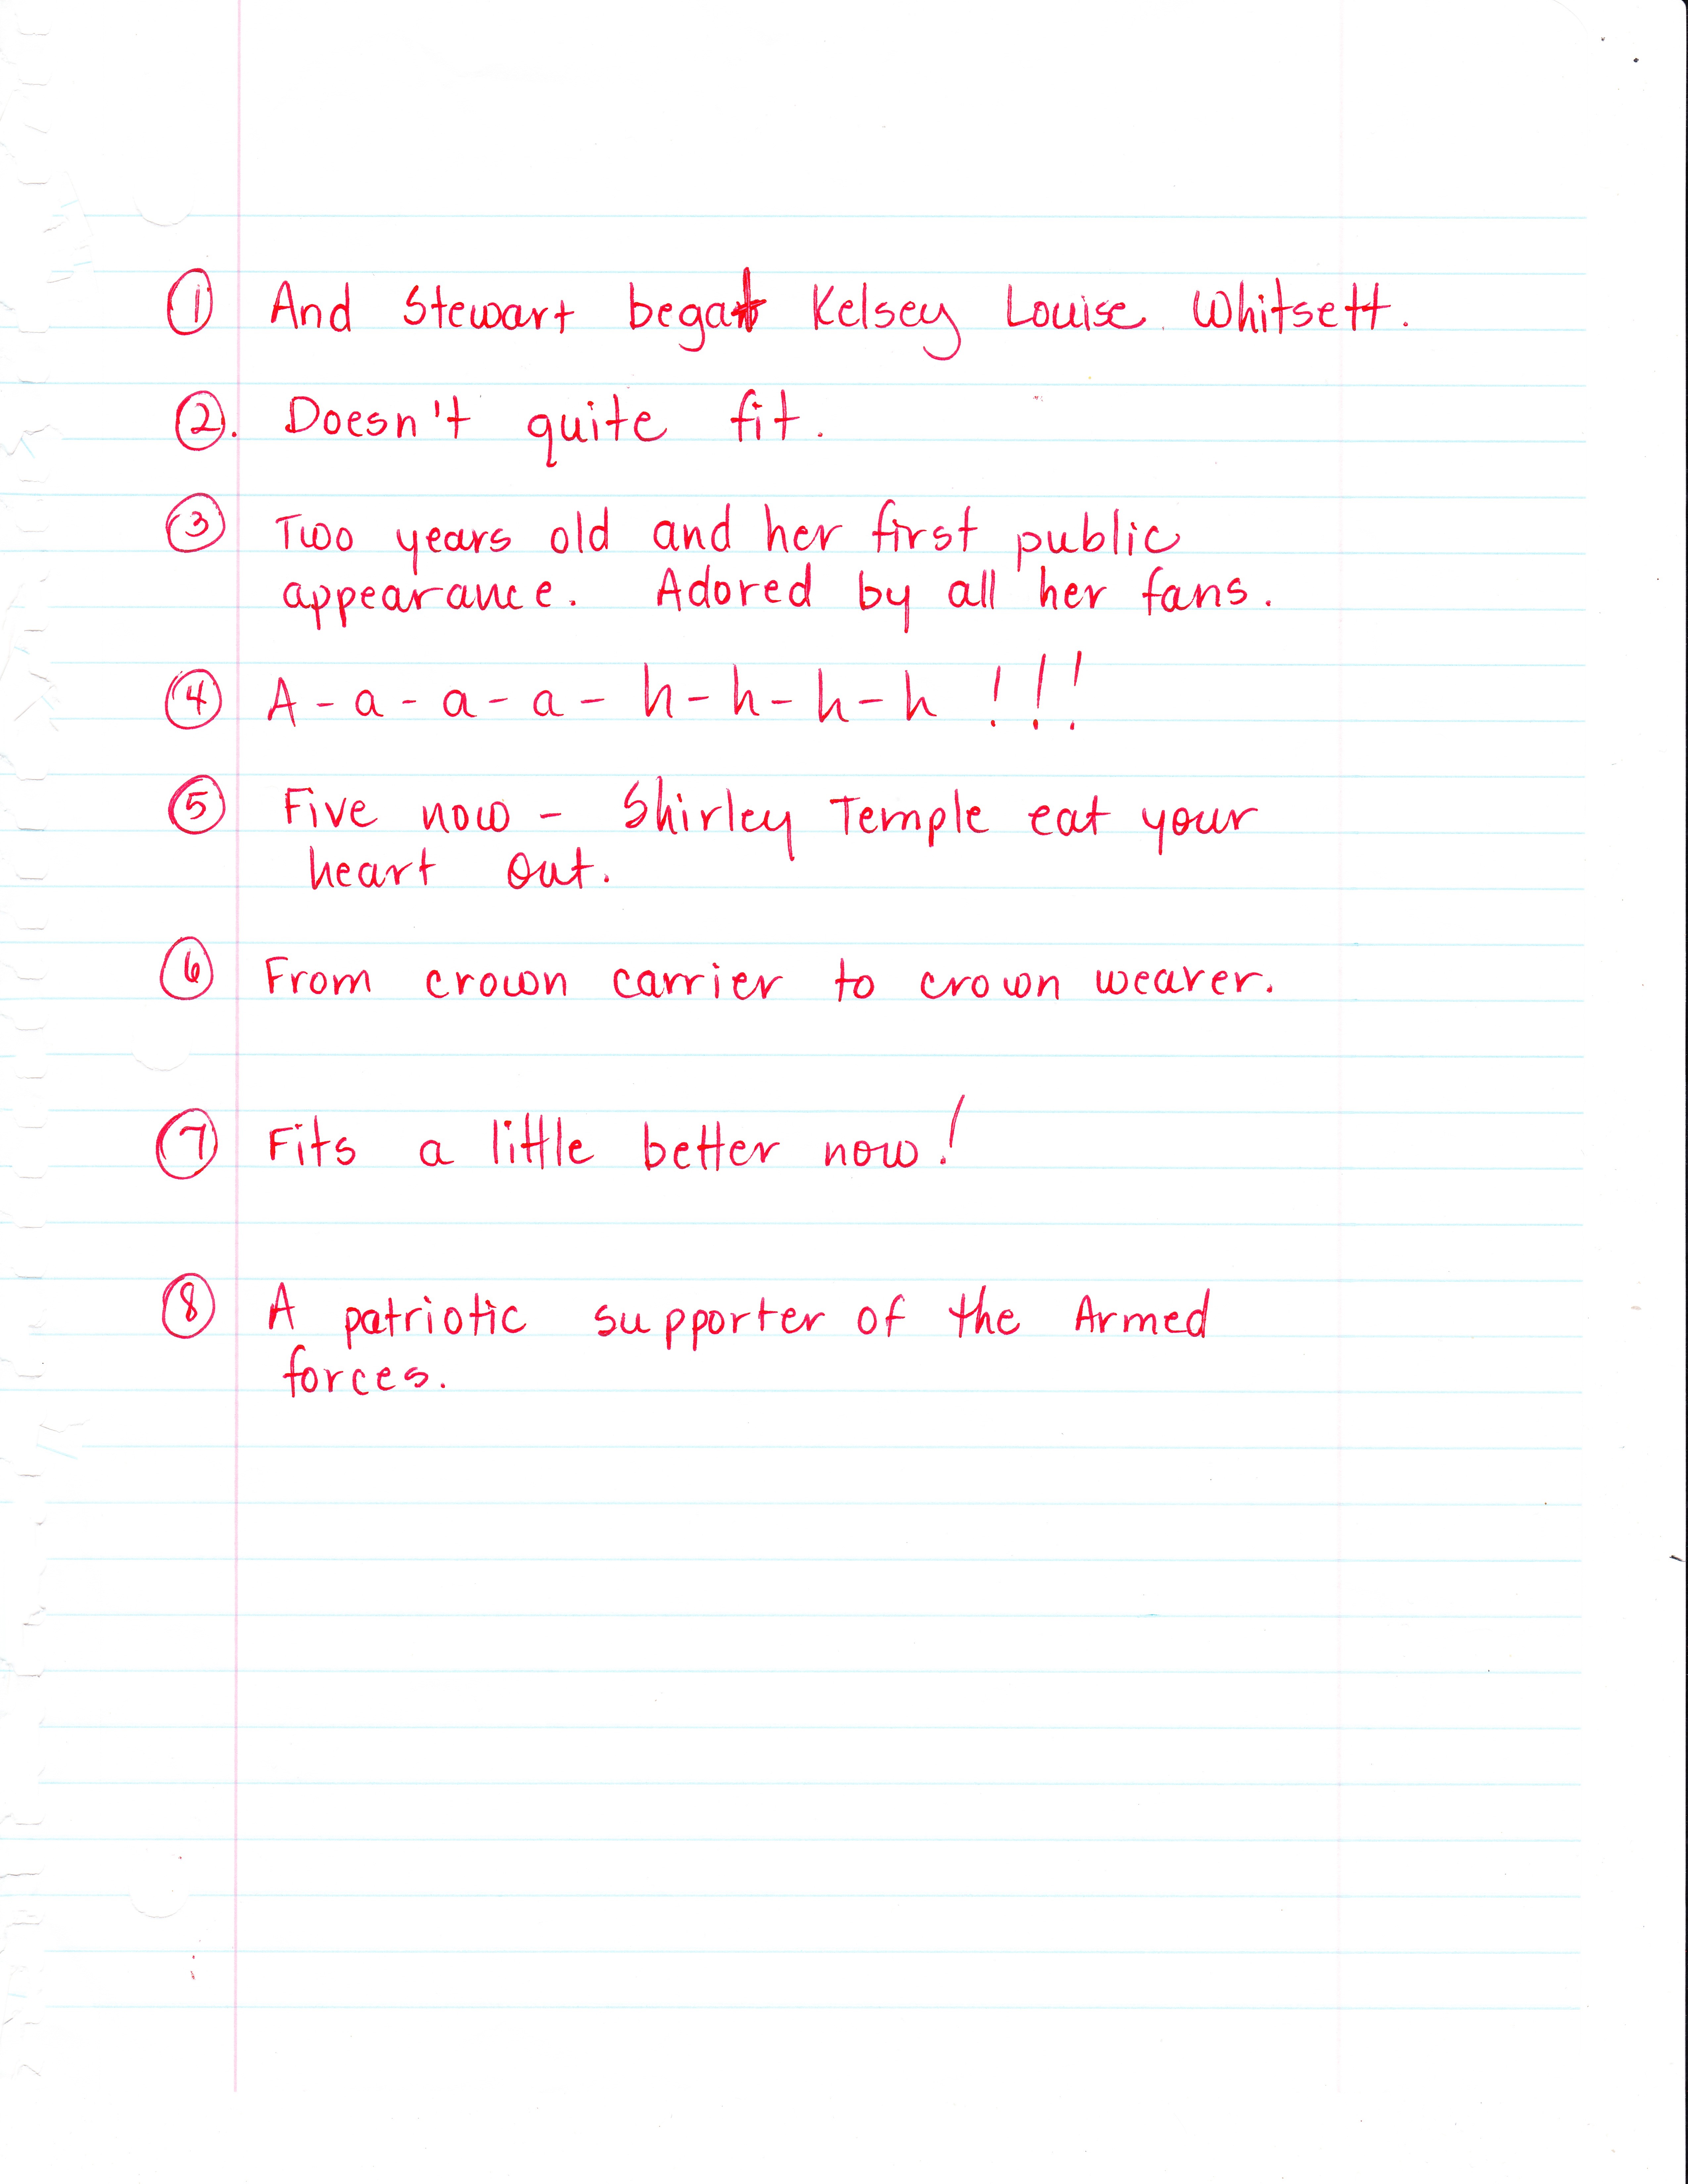 ① And Stewart begat Kelsey Louise Whitsett.
②. Doesn't quite fit.
③ Two years old and her first public
appearance. Adored by all her fans.
④ A-a-a-a-h-h-h-h!!!
⑤ Five now - Shirley Temple eat your
heart out.
⑥ From crown carrier to crown wearer.
⑦ Fits a little better now!
⑧ A patriotic supporter of the Armed
forces.